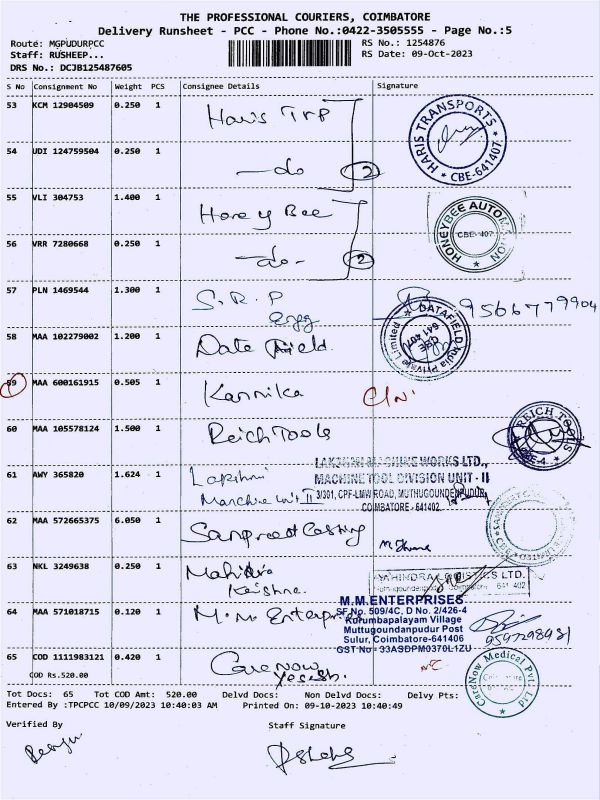 THE PROFESSIONAL COURIERS, COIMBATORE
Delivery Runsheet - PCC - Phone No.:0422-3505555 - Page No.:5
Route: MGPUDURPCC RS No.: 1254876
Staff: RUSHEEP... RS Date: 09-Oct-2023
DRS No.: DCJB125487605
S No Consignment No Weight PCS Consignee Details Signature
53 KCM 12904509 0.250 1 Haris Trp HARIS TRANSPORTS CBE-641407
54 UDI 124759504 0.250 1 -do 2
55 VLI 304753 1.400 1 Honey Bee HONEYBEE AUTOMATION CBE-407
56 VRR 7280668 0.250 1 -do- 2
57 PLN 1469544 1.300 1 S.R.P Engg 9566779904
58 MAA 102279002 1.200 1 Data Field. DATAFIELD India Private Limited CBE 641407
59 MAA 600161915 0.505 1 Kannika
60 MAA 105578124 1.500 1 Reich Tools REICH TOOLS
61 AWY 365820 1.624 1 Lakshmi Machine Unit II
LAKSHMI MACHINE WORKS LTD.,
MACHINE TOOL DIVISION UNIT - II
3/301, CPF-LMW ROAD, MUTHUGOUNDENPUDUR,
COIMBATORE - 641402.
62 MAA 572665375 6.050 1 Sanpreet Casting
63 NKL 3249638 0.250 1 Mahidra MAHINDRA LOGISTICS LTD.
64 MAA 571018715 0.120 1 M.M Enterprises
M.M.ENTERPRISES
SF.No. 509/4C, D No. 2/426-4
Kurumbapalayam Village
Muttugoundanpudur Post
Sulur, Coimbatore-641406
GST No - 33ASDPM0370L1ZU
9597298931
65 COD 1111983121 0.420 1 Care Now CareNow Medical Pvt. Ltd
COD Rs.520.00
Tot Docs: 65 Tot COD Amt: 520.00 Delvd Docs: Non Delvd Docs: Delvy Pts:
Entered By :TPCPCC 10/09/2023 10:40:03 AM Printed On: 09-10-2023 10:40:49
Verified By Staff Signature